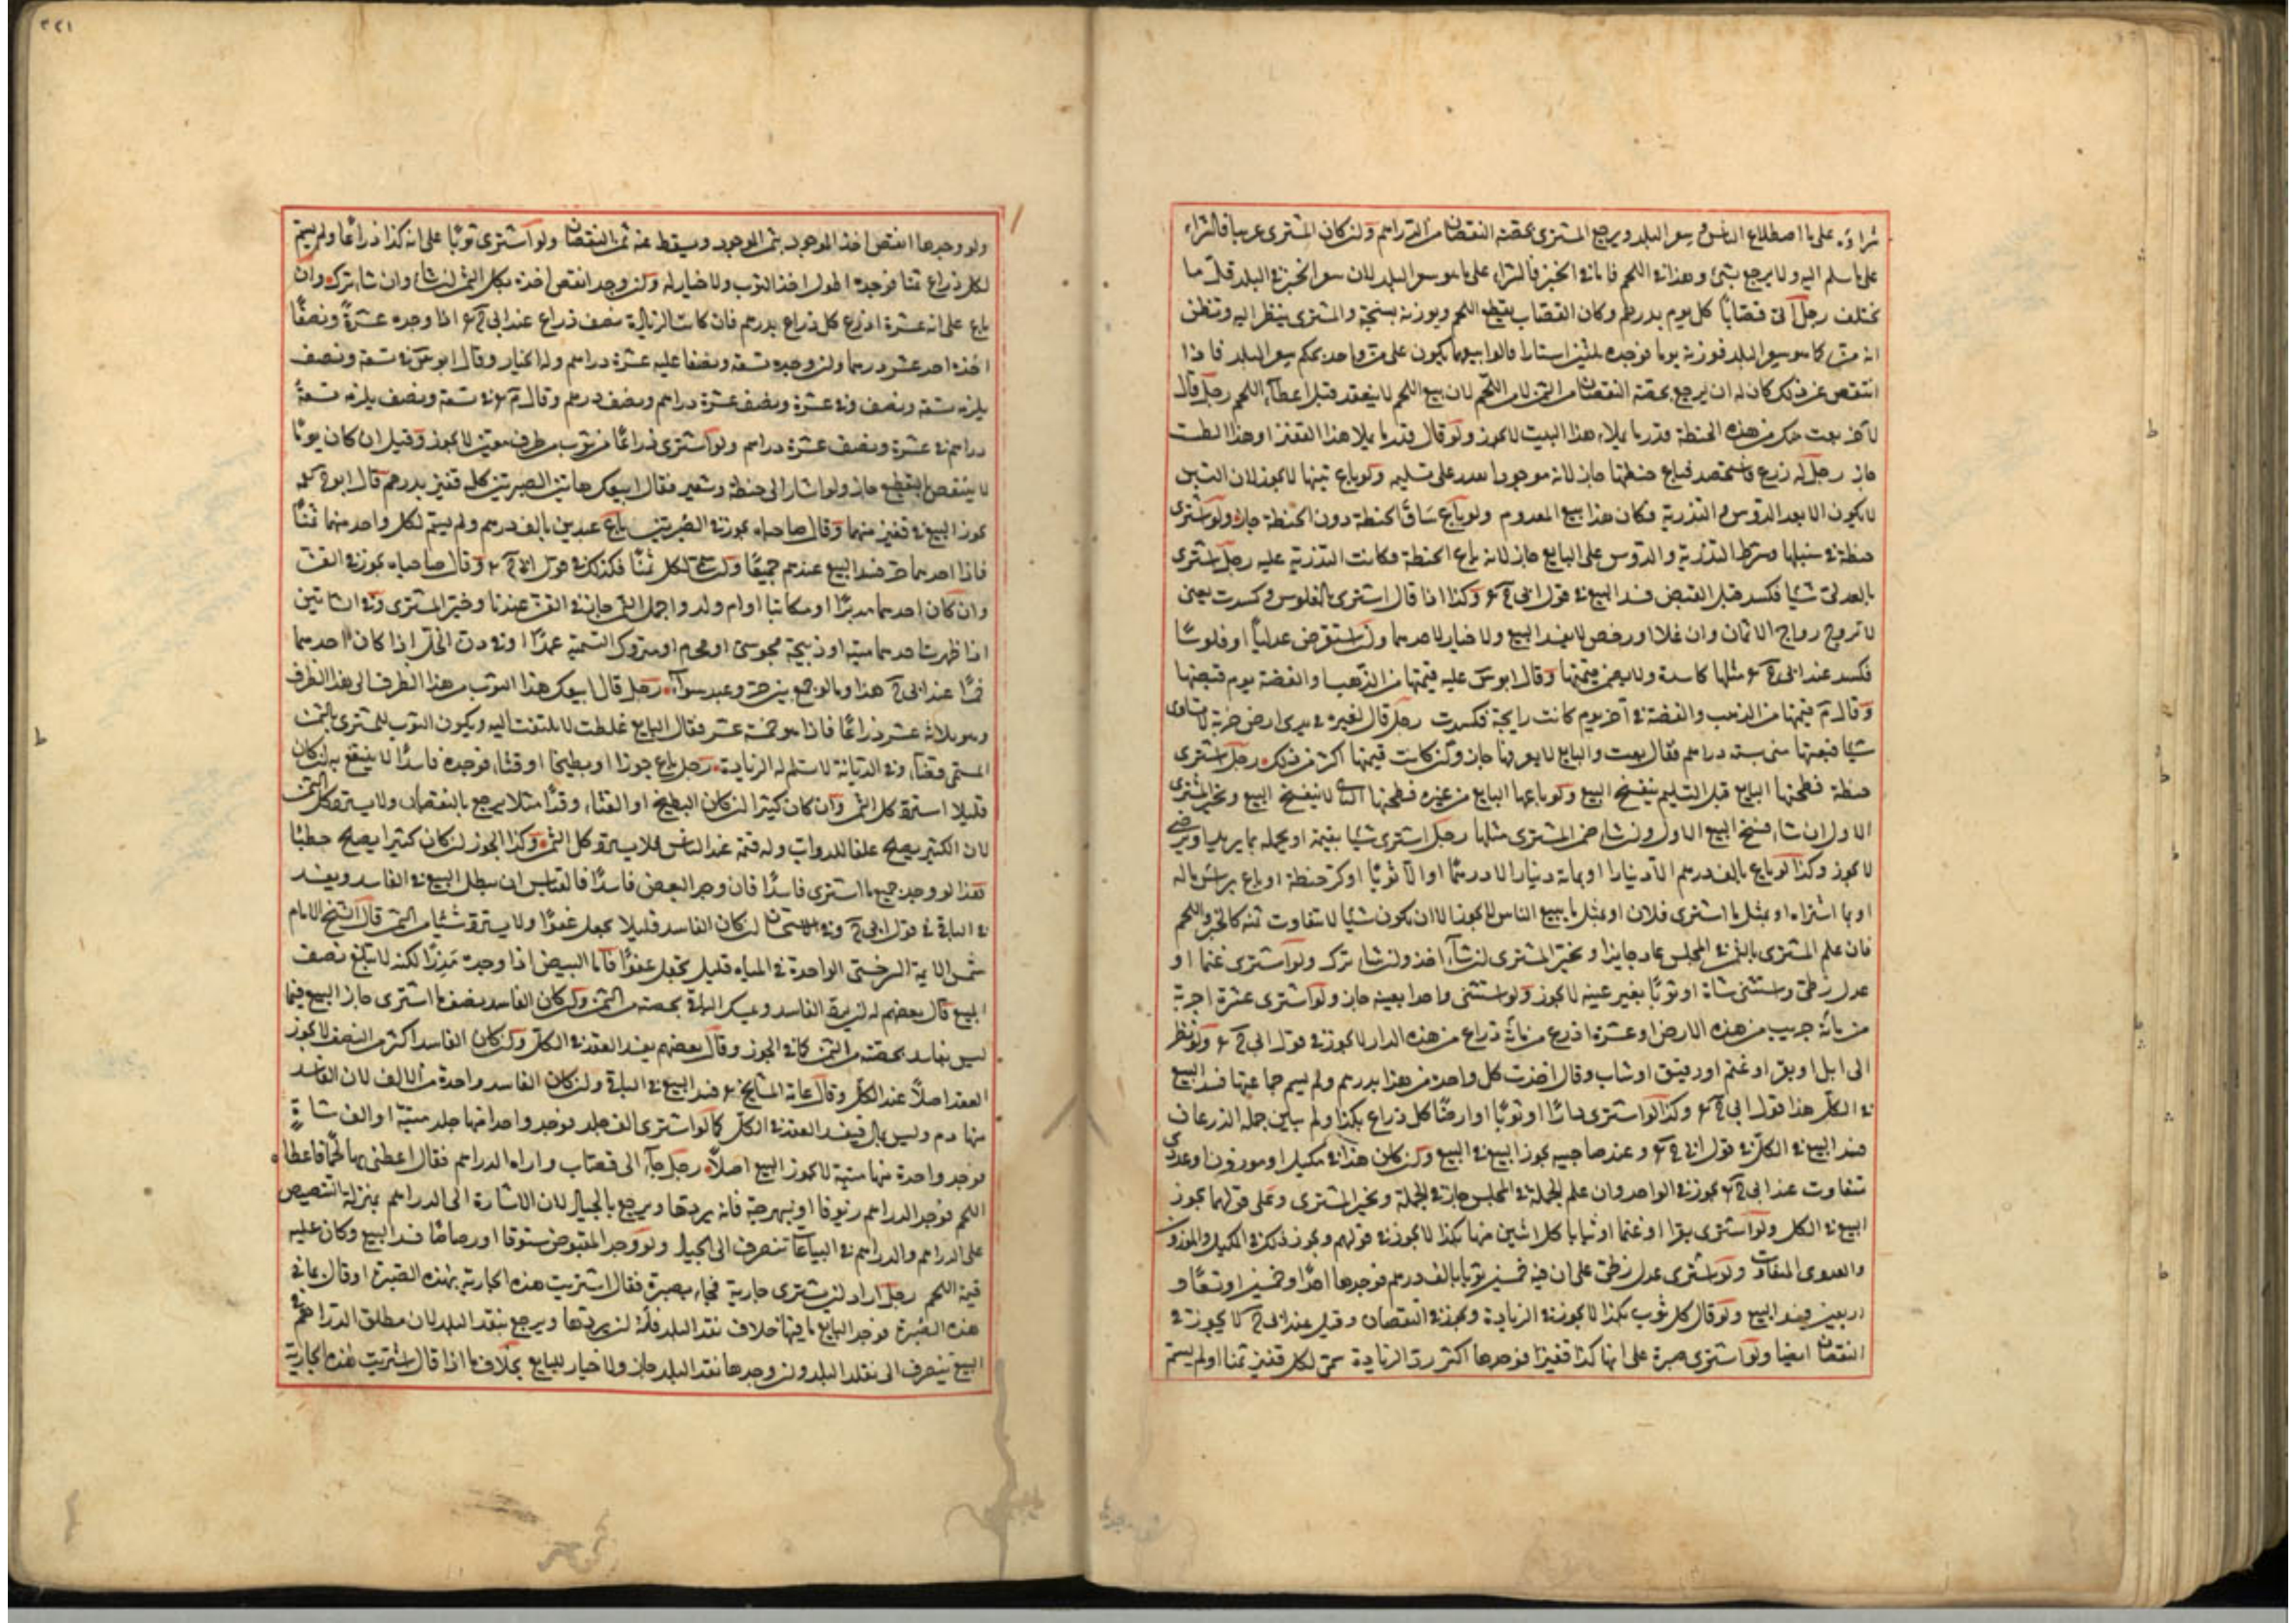 شراؤه على ما اصطلاع الناس في سعر البلد ويرجع المشترى بحصة النقصان من الدراهم ولن كان المشترى غريبا فالشراء
على ما سلم اليه ولا يرجع بشئ وهذا في اللحم فاما في الخبز فالشراء على ما هو سعر البلد لان سعر الخبز في البلد قل ما
يختلف رجل اتى قصابا كل يوم بدرهم وكان القصاب يقطع اللحم ويوزنه بسنجة والمشترى ينظر اليه ويظن
انه من كما هو سعر البلد فوزنه يوما فوجده ثلثين استارا قالوا بيعهما يكون على من واحد بحكم سعر البلد فاذا
انتقص عن ذلك كان له ان يرجع بحصة النقصان من الثمن لا من اللحم لان بيع اللحم لا ينعقد قبل اعطاء اللحم رجل قال
لآخر بعت منك من هذه الحنطة قدر ما يملاء هذا البيت لا يجوز ولو قال قدر ما يملا هذا القفيز او هذا الطست
جاز رجل له زرع فاستحصد فباع حنطتها جاز لانه موجود يقدر على تسليمه ولو باع تبنها لا يجوز لان التبن
لا يكون الا بعد الدوس والتذرية فكان هذا بيع المعدوم ولو باع ساق الحنطة دون الحنطة جاز ولو اشترى
حنطة في سنبلها وشرط التذرية والدوس على البايع جاز لانه باع الحنطة فكانت التذرية عليه رجل اشترى
بالعدلى شيا فكسد قبل القبض فسد البيع في قول ابى ح وكذا اذا قال اشترى بالفلوس وكسدت يعنى
لا تروج رواج الاثمان وان غلا او رخص لا يفسد البيع ولا خيار لاحدهما ولن استقرض عدليا او فلوسا
فكسد عند ابى ح مثلها كاسدة ولا يضمن قيمتها وقال ابو س عليه قيمتها من الذهب والفضة يوم قبضها
وقال م قيمتها من الذهب والفضة في آخر يوم كانت رايجة فكسدت رجل قال لغيره في يدى ارض خربة لا تساوى
شيا فبعتها منى بستة دراهم فقال بعت والبايع لا يعرفها جاز ولن كانت قيمتها اكثر من ذلك رجل اشترى
حنطة فطحنها البايع قبل التسليم ينفسخ البيع ولو باعها البايع من غيره فطحنها الثانى لا ينفسخ البيع ويخير المشترى
الاول ان شاء فسخ البيع الاول ولن شاء ضمن المشترى مثلها رجل اشترى شيا بقيمة او بحمله بما يريد او يرضى
لا يجوز وكذا لو باع بالف درهم الا دينارا او بمائة دينار الا درهما او الا ثوبا او كر حنطة او باع براس ماله
او بما اشتراه او بمثل ما اشترى فلان او بمثل ما يبيع الناس لا يجوز الا ان يكون شيا لا يتفاوت ثمنه كالخبز واللحم
فان علم المشترى بالثمن في المجلس عاد جايزا ويخير المشترى لن شاء اخذ ولن شاء ترك ولو اشترى غنما او
عدل زطى واستثنى شاة او ثوبا بغير عينه لا يجوز ولو استثنى واحدا بعينه جاز ولو اشترى عشرة اجربة
من مائة جريب من هذه الارض او عشرة اذرع من مائة ذراع من هذه الدار لا يجوز في قول ابى ح ولو نظر
الى ابل او بقر او غنم او رقيق او شاب وقال اخذت كل واحد من هذا بدرهم ولم يسم جماعتها فسد البيع
في الكل هذا قول ابى ح وكذا لو اشترى دارا او ثوبا او ارضا كل ذراع بكذا ولم يبين جملة الذرعان
فسد البيع في الكل في قول ابى ح وعند صاحبيه يجوز البيع في البيع ولن كان هذا في مكيل او موزون او عددى
تتفاوت عند ابى ح يجوز في الواحد وان علم الجملة في المجلس جاز في الجملة ويخير المشترى وعلى قولهما يجوز
البيع في الكل ولو اشترى بقرا او غنما او ثيابا كل اثنين منها بكذا لا يجوز في قولهم ويجوز ذلك في المكيل والموزون
والعددى المتقارب ولو اشترى عدل زطى على ان فيه خمسين ثوبا بالف درهم فوجدها احدا وخمسين او تسعا و
اربعين فسد البيع ولو قال كل ثوب بكذا لا يجوز في الزيادة ويجوز في النقصان وقيل عند ابى ح لا يجوز في
النقصان ايضا ولو اشترى صبرة على انها كذا قفيزا فوجدها اكثر رد الزيادة سمى لكل قفيز ثمنا او لم يسم
٢٢١
ولو وجدها انقص اخذ الموجود بثمن الموجود ويسقط عنه ثمن النقصان ولو اشترى ثوبا على انه كذا ذراعا ولم يسم
لكل ذراع ثمنا فوجده اطول اخذ الثوب ولا خيار له ولن وجد انقص اخذه بكل الثمن لن شاء وان شاء ترك وان
باع على انه عشرة اذرع كل ذراع بدرهم فان كانت الزيادة نصف ذراع عند ابى ح اذا وجده عشرة ونصفا
اخذه احد عشر درهما ولن وجده تسعة ونصفا عليه عشرة دراهم وله الخيار وقال ابو س في تسعة ونصف
يلزمه تسعة ونصف وفي عشرة ونصف عشرة دراهم ونصف درهم وقال م في تسعة ونصف يلزمه تسعة
دراهم في عشرة ونصف عشرة دراهم ولو اشترى ذراعا من ثوب من طرف معين لا يجوز وقيل ان كان ثوبا
لا ينتقص بالقطع جاز ولو اشار الى حنطة وشعير فقال ابيعك هاتين الصبرتين كل قفيز بدرهم قال ابو ح
يجوز البيع في قفيز منهما وقال صاحباه يجوز في الصبرتين باع عبدين بالف درهم ولم يسم لكل واحد منهما ثمنا
فاذا احدهما حر فسد البيع عندهم جميعا ولن سمى لكل ثمنا فكذلك في قول ابى ح وقال صاحباه يجوز في القن
وان كان احدهما مدبرا او مكاتبا او ام ولد واجمل الثمن جاز في القن عندنا وخير المشترى وفي الشاتين
اذا ظهرت احدهما ميتة او ذبيحة مجوسى او محرم او متروك التسمية عمدا او في دن الخل اذا كان احدهما
خمرا عند ابى ح هذا وما لو جمع بين حر وعبد سواء رجل قال ابيعك هذا الثوب من هذا الطرف الى هذا الطرف
وهو ثلاثة عشر ذراعا فاذا هو خمسة عشر فقال البايع غلطت لا يلتفت اليه ويكون الثوب للمشترى بالثمن
المسمى قضاء وفي الديانة لا تسلم له الزيادة رجل باع جوزا او بطيخا او قثاء فوجده فاسدا لا ينتفع به لن كان
قليلا استرد كل الثمن وان كان كثيرا لن كان البطيخ او القثاء وقدا مثلا يرجع بالنقصان ولا يسترد كل الثمن
لان الكثير يصلح علفا للدواب وله قيمة عند الناس فلا يسترد كل الثمن وكذا الجوز لن كان كثيرا يصلح حطبا
هذا لو وجد جميع ما اشترى فاسدا فان وجد البعض فاسدا فالقياس ان يبطل البيع في الفاسد ويفسد
في الباقى في قول ابى ح وفي الاستحسان لن كان الفاسد قليلا يجعل عفوا ولا يسترد شيئا من الثمن قال الشيخ الامام
شمس الايمة السرخسى الواحدة في المياه قليل يجعل عفوا فاما البيض اذا وجده مذرا لكنه لا يبلغ نصف
البيع قال بعضهم له لن يرد الفاسد ويمسك الباقى بحصته من الثمن ولن كان الفاسد نصف ما اشترى جاز البيع فيما
ليس بفاسد بحصته من الثمن كما في الجوز وقال بعضهم يفسد العقد في الكل ولن كان الفاسد اكثر من النصف لا يجوز
العقد اصلا عند الكل وقال عامة المشايخ فسد البيع في الباقى ولن كان الفاسد واحدة من الالف لان الفاسد
منها دم وليس بمال فيفسد العقد في الكل كما لو اشترى الف جلد فوجد واحدا منها جلد ميتة او الف شاة
فوجد واحدة منها ميتة لا يجوز البيع اصلا رجل جاء الى قصاب واراه الدراهم فقال اعطنى بها لحما فاعطاه
اللحم فوجد الدراهم زيوفا او نبهرجة فانه يردها ويرجع بالجياد لان الاشارة الى الدراهم بمنزلة التنصيص
على الدراهم والدراهم في البياعات تنصرف الى الجياد ولو وجد المقبوض ستوقا او رصاصا فسد البيع وكان عليه
قيمة اللحم رجل اراد لن يشترى جارية فجاء بصرة فقال اشتريت هذه الجارية بهذه الصرة او قال بما في
هذه الصرة فوجد البايع ما فيها خلاف نقد البلد فله لن يردها ويرجع بنقد البلد لان مطلق الدراهم في
البيع ينصرف الى نقد البلد ولن وجدها نقد البلد جاز ولا خيار للبايع بخلاف ما اذا قال اشتريت هذه الجارية